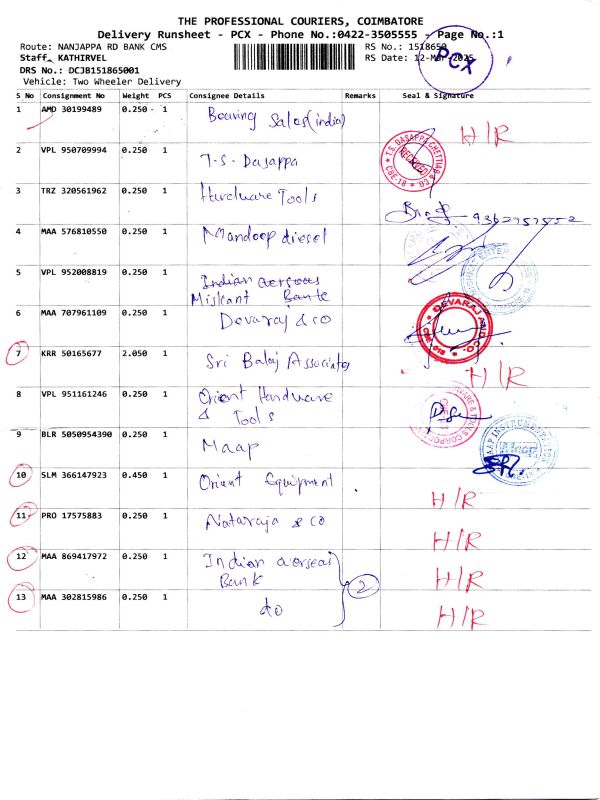 THE PROFESSIONAL COURIERS, COIMBATORE
Delivery Runsheet - PCX - Phone No.:0422-3505555 - Page No.:1
Route: NANJAPPA RD BANK CMS
RS No.: 1518650
Staff KATHIRVEL
RS Date: 12-Mar-2025
PCX
DRS No.: DCJB151865001
Vehicle: Two Wheeler Delivery
S No Consignment No Weight PCS Consignee Details Remarks Seal & Signature
1 AMD 30199489 0.250 1 Bearing Sales (india) H/R
2 VPL 950709994 0.250 1 T-S-Dasappa
T.S. DASAPPA CHETTIAR & CO. CBE-18 RECEIVED
3 TRZ 320561962 0.250 1 Hardware Tools
4 MAA 576810550 0.250 1 Mandeep diesel
5 VPL 952008819 0.250 1 Indian overseas
Miskant Bank
6 MAA 707961109 0.250 1 Devaraj & co
DEVARAJ AND CO. CBE-018
7 KRR 50165677 2.050 1 Sri Balaj Associates H/R
8 VPL 951161246 0.250 1 Orient Hardware
& Tools
9 BLR 5050954390 0.250 1 Maap
10 SLM 366147923 0.450 1 Orient Equipment H/R
11 PRO 17575883 0.250 1 Nataraja & co H/R
12 MAA 869417972 0.250 1 Indian overseas
Bank 2 H/R
13 MAA 302815986 0.250 1 do H/R